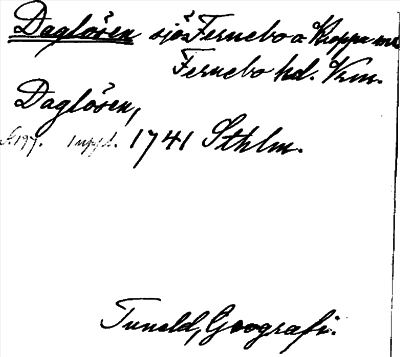 Daglösen sjö Fernebo o. Kroppa snr
Fernebo hd. Vrm.
Daglösen,
s. 197. 1 uppl. 1741 Sthlm.
Tuneld, Geografi.